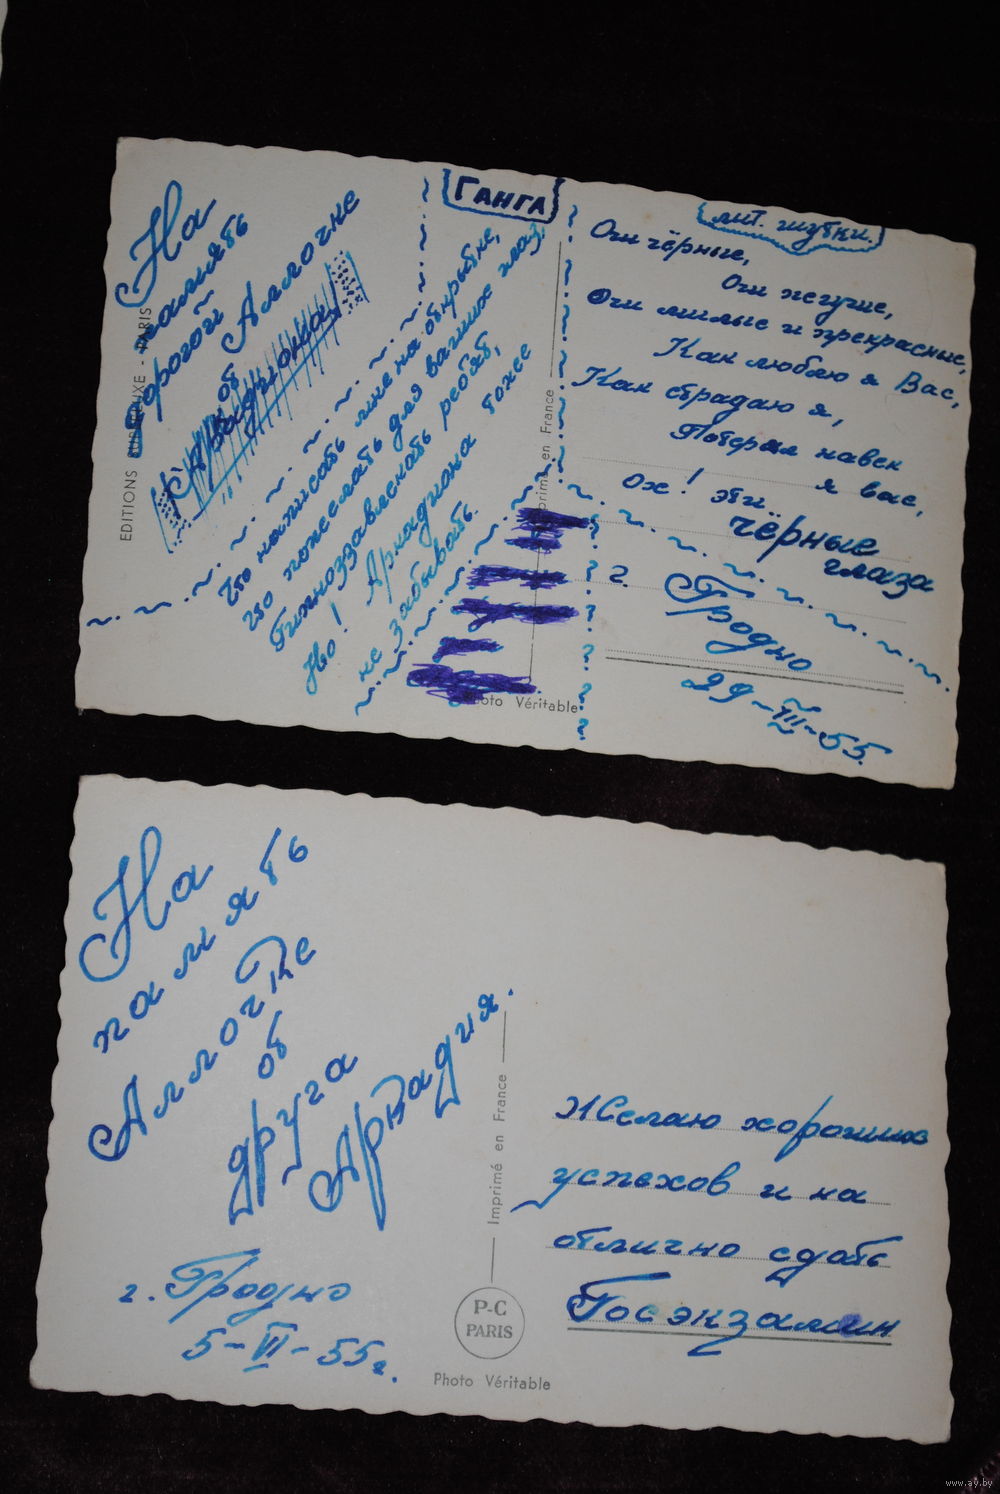 ГАНГА
лит. шутки.
На
память
дорогой
Аллочке
об
Аркадиона
Что написать мне на открытке,
что пожелать для ваших глаз,
Гипноззавлекать ребят,
Но! Аркадиона тоже
не забывать.
Очи чёрные,
Очи жгучие,
Очи милые и прекрасные,
Как люблю я Вас,
Как страдаю я,
Потерял навек
я вас,
ох! эти..
чёрные
глаза
г. Гродно
29-III-55.
EDITIONS
PARIS
Imprimé en France
Photo Véritable
На
память
Аллочке
об
друга
Аркадия.
г. Гродно
5-VI-55г.
Imprimé en France
P-C
PARIS
Photo Véritable
Желаю хороших
успехов и на
отлично сдать
Госэкзамин
www.ay.by